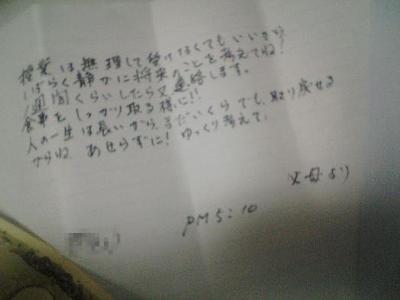 授業は無理して受けなくてもいいから
しばらく静かに将来のことを考えてね!
1週間くらいしたら又連絡します。
食事をしっかり取る様に!!
人の一生は長いから、まだいくらでも、取り戻せる
からね、あせらずに! ゆっくり考えて、
父母より
PM 5:10